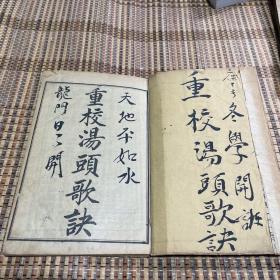 冬學開
重校湯頭歌訣
天地不如水
重校湯頭歌訣
龍門日日開